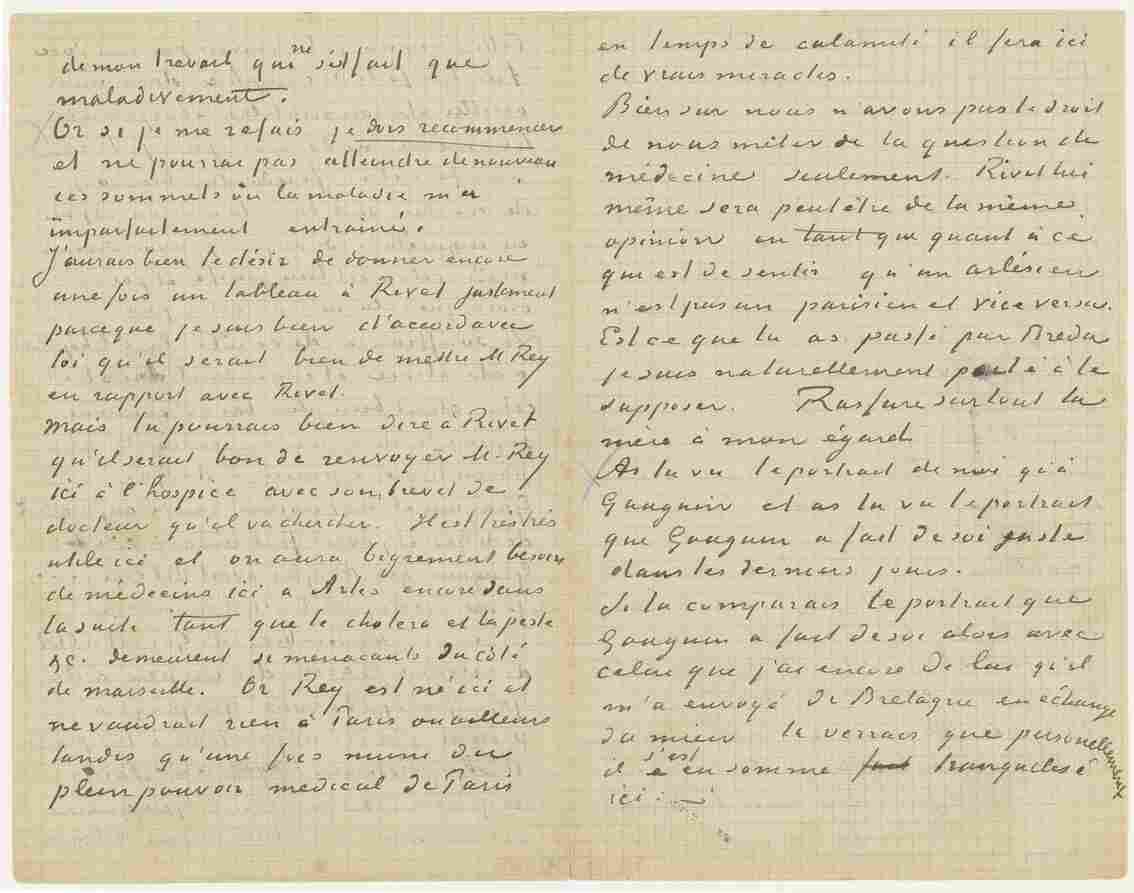 de mon travail qui ne s'est fait que
maladivement.
Or si je me refais je dois recommencer
et ne pourrai pas atteindre de nouveau
ces sommets où la maladie m'a
imparfaitement entrainé.
J'aurais bien le désir de donner encore
une fois un tableau à Rivet justement
parceque je suis bien d'accord avec
toi qu'il serait bien de mettre M. Rey
en rapport avec Rivet.
Mais tu pourrais bien dire à Rivet
qu'il serait bon de renvoyer M. Rey
ici à l'hospice avec son brevet de
docteur qu'il va chercher. Il est très très
utile ici et on aura bigrement besoin
de médecins ici a Arles encore dans
la suite tant que le cholera et la peste
&c. demeurent si menacants du côté
de marseille. Or Rey est né ici et
ne vaudrait rien à Paris ou ailleurs
tandis qu'une fois muni du
plein pouvoir medical de Paris
en temps de calamité il fera ici
de vrais miracles.
Bien sur nous n'avons pas le droit
de nous mêler de la question de
médecine seulement. Rivet lui
même sera peut être de la même
opinion en tant que quant à ce
qui est de sentir qu'un arlésien
n'est pas un parisien et vice versa.
Est ce que tu as passé par Breda
je suis naturellement porté à le
supposer. Rassure surtout la
mère à mon égard
As tu vu le portrait de moi qu'a
Gauguin et as tu vu le portrait
que Gauguin a fait de soi juste
dans les derniers jours.
Si tu comparais le portrait que
Gauguin a fait de soi alors avec
celui que j'ai encore de lui qu'il
m'a envoyé de Bretagne en échange
du mien tu verrais que personellement
il s'est en somme tranquilisé
ici.